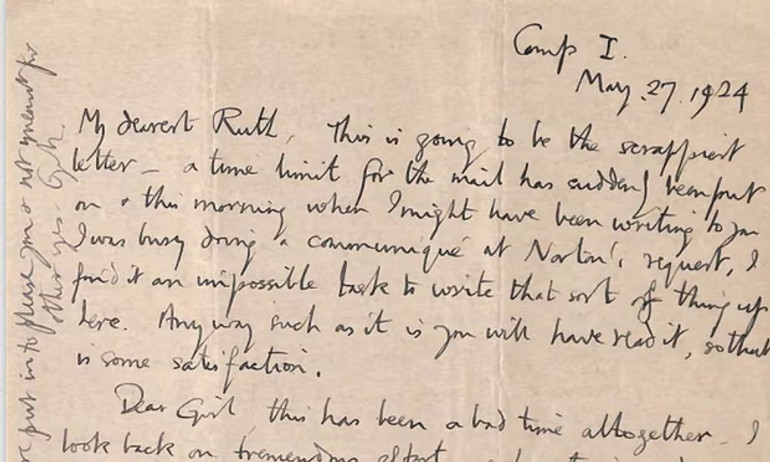 Camp I.
May.27.1924
My dearest Ruth, This is going to be the scrappiest
letter – a time limit for the mail has suddenly been put
on & this morning when I might have been writing to you
I was busy doing a communiqué at Norton's request, I
find it an impossible task to write that sort of thing up
here. Anyway such as it is you will have read it, so that
is some satisfaction.
Dear Girl, this has been a bad time altogether – I
look back on tremendous effort
put in to please you & not meant for
other eyes – G.M.